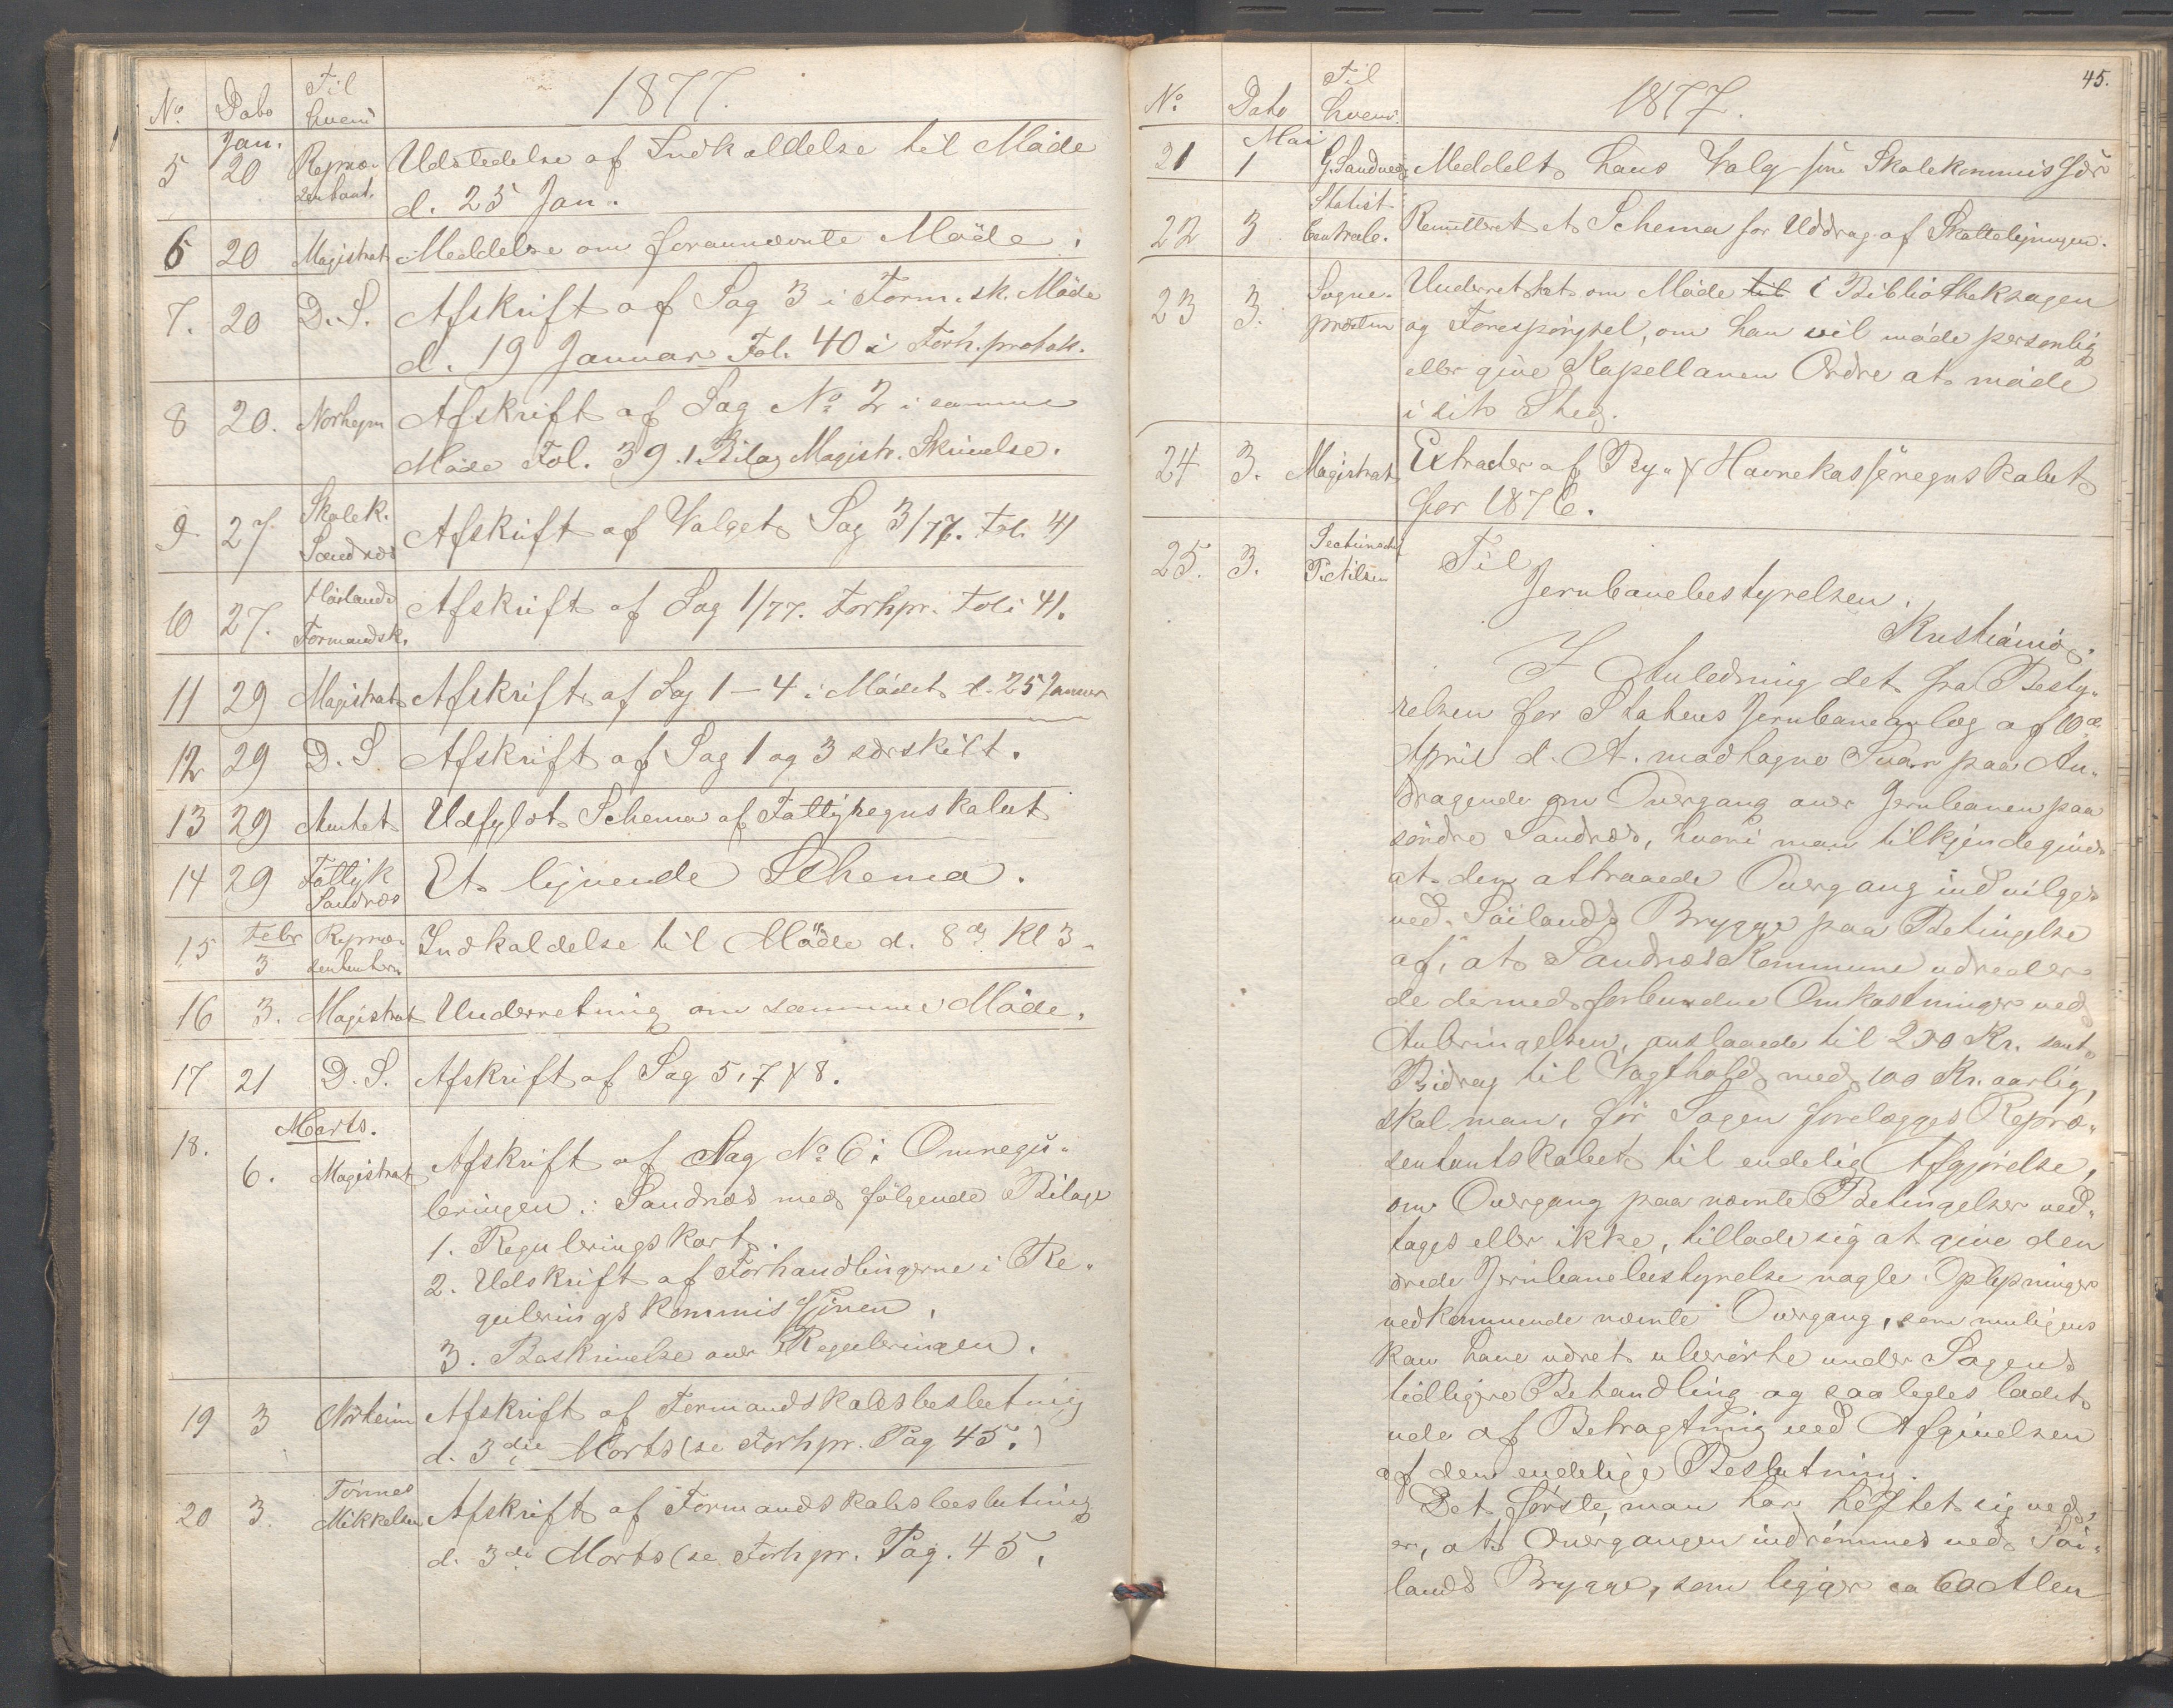 No. Dato Til hvem 1877.
Jan.
5 20 Repræ- Udstedelse af Indkaldelse til Møde
sentant. d. 25 Jan.
6 20 Magistrat Meddelse om forannævnte Møde.
7. 20 D. S. Afskrift af Sag 3 i Form.sk. Møde
d. 19 Januar Fol. 40 i Forh.protok.
8 20. Norhejm Afskrift af Sag No. 2 i samme
Møde Fol. 39. 1 Bilag Magistr. Skrivelse.
9 27. Skolek. Sandnæs Afskrift af Valget Sag 3/77. Fol. 41
10 27. Høilands Formandsk. Afskrift af Sag 1/77. Forhpr. Foli 41.
11 29 Magistrat Afskrift af Sag 1 – 4 i Mødet d. 25 Januar
12 29 D. S. Afskrift af Sag 1 og 3 særskilt.
13 29 Amtet Udfyldt Schema af Fattigregnskabet
14 29 Fattigk Sandnæs Et lignende Schema.
15 Febr 3 Repræ- sentanterne Indkaldelse til Møde d. 8de Kl 3
16 3. Magistrat Underretning om samme Møde.
17 21 D. S. Afskrift af Sag 5, 7 & 8.
Marts.
18. 6. Magistrat Afskrift af Sag No. 6: Omregu-
leringen i Sandnæs med følgende Bilage
1. Reguleringskart.
2. Udskrift af Forhandlingerne i Re-
guleringskommissionen.
3. Beskrivelse over Reguleringen.
19 3 Norheim Afskrift af Formandskabsbeslutning
d. 3die Marts (se Forhpr. Pag 45.)
20 3. Tønnes Mikkelsen Afskrift af Formandskabsbeslutning
d. 3di Marts (se Forhpr. Pag. 45.
45.
No. Dato Til hvem. 1877.
Mai
21 1 G. Sandnes Meddelt hans Valg som Skolekommissær
22 3 Statist. Centralb. Remitteret et Schema for Uddrag af Skatteligningen.
23 3. Sogne- Underrettet om Møde til i Bibliotheksagen
præsten og Forespørgsel, om han vil møde personlig
eller give Kapellanen Ordre at møde
i sit Sted.
24 3. Magistrat Extrader af By- & Havnekasseregnskabet
for 1876.
25. 3. P. Nilsen Til
Jernbanebestyrelsen.
Kristiania.
I Anledning det fra Besty-
relsen for Statens Jernbaneanlæg af 10de
April d. A. modtagne Svar paa An-
dragende om Overgang over Jernbanen paa
søndre Sandnæs, hvori man tilkjendegives
at den attraaede Overgang indvilges
ved Søilands Brygge paa Betingelse
af, at Sandnæs Kommune udreder
de dermed forbundne Omkostninger ved
Anbringelsen, anslaaede til 200 Kr. samt
Bidrag til Vagthold med 100 Kr. aarlig,
skal man, før Sagen forelægges Repræ-
sentantskabet til endelig Afgjørelse,
om Overgang paa nævnte Betingelser ved-
tages eller ikke, tillade sig at give den
ærede Jernbanebestyrelse nogle Oplysninger
vedkommende nævnte Overgang, som muligens
kan have været uberørte under Sagens
tidligere Behandling og saaledes ladet
ude af Betragtning ved Afgivelsen
af den endelige Beslutning.
Det første, man har heftet sig ved,
er, at Overgangen indrømmes ved Søi-
lands Brygge, som ligger ca 60 Alen